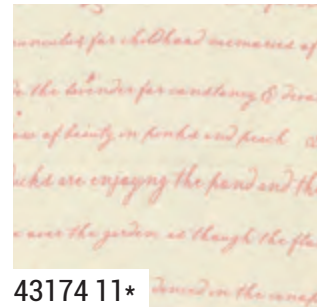 for childhood memories of
the lavender for constancy &
of beauty in pinks and peach
ucks are enjoying the pond and th
over the garden as though the fl
43174 11* in the